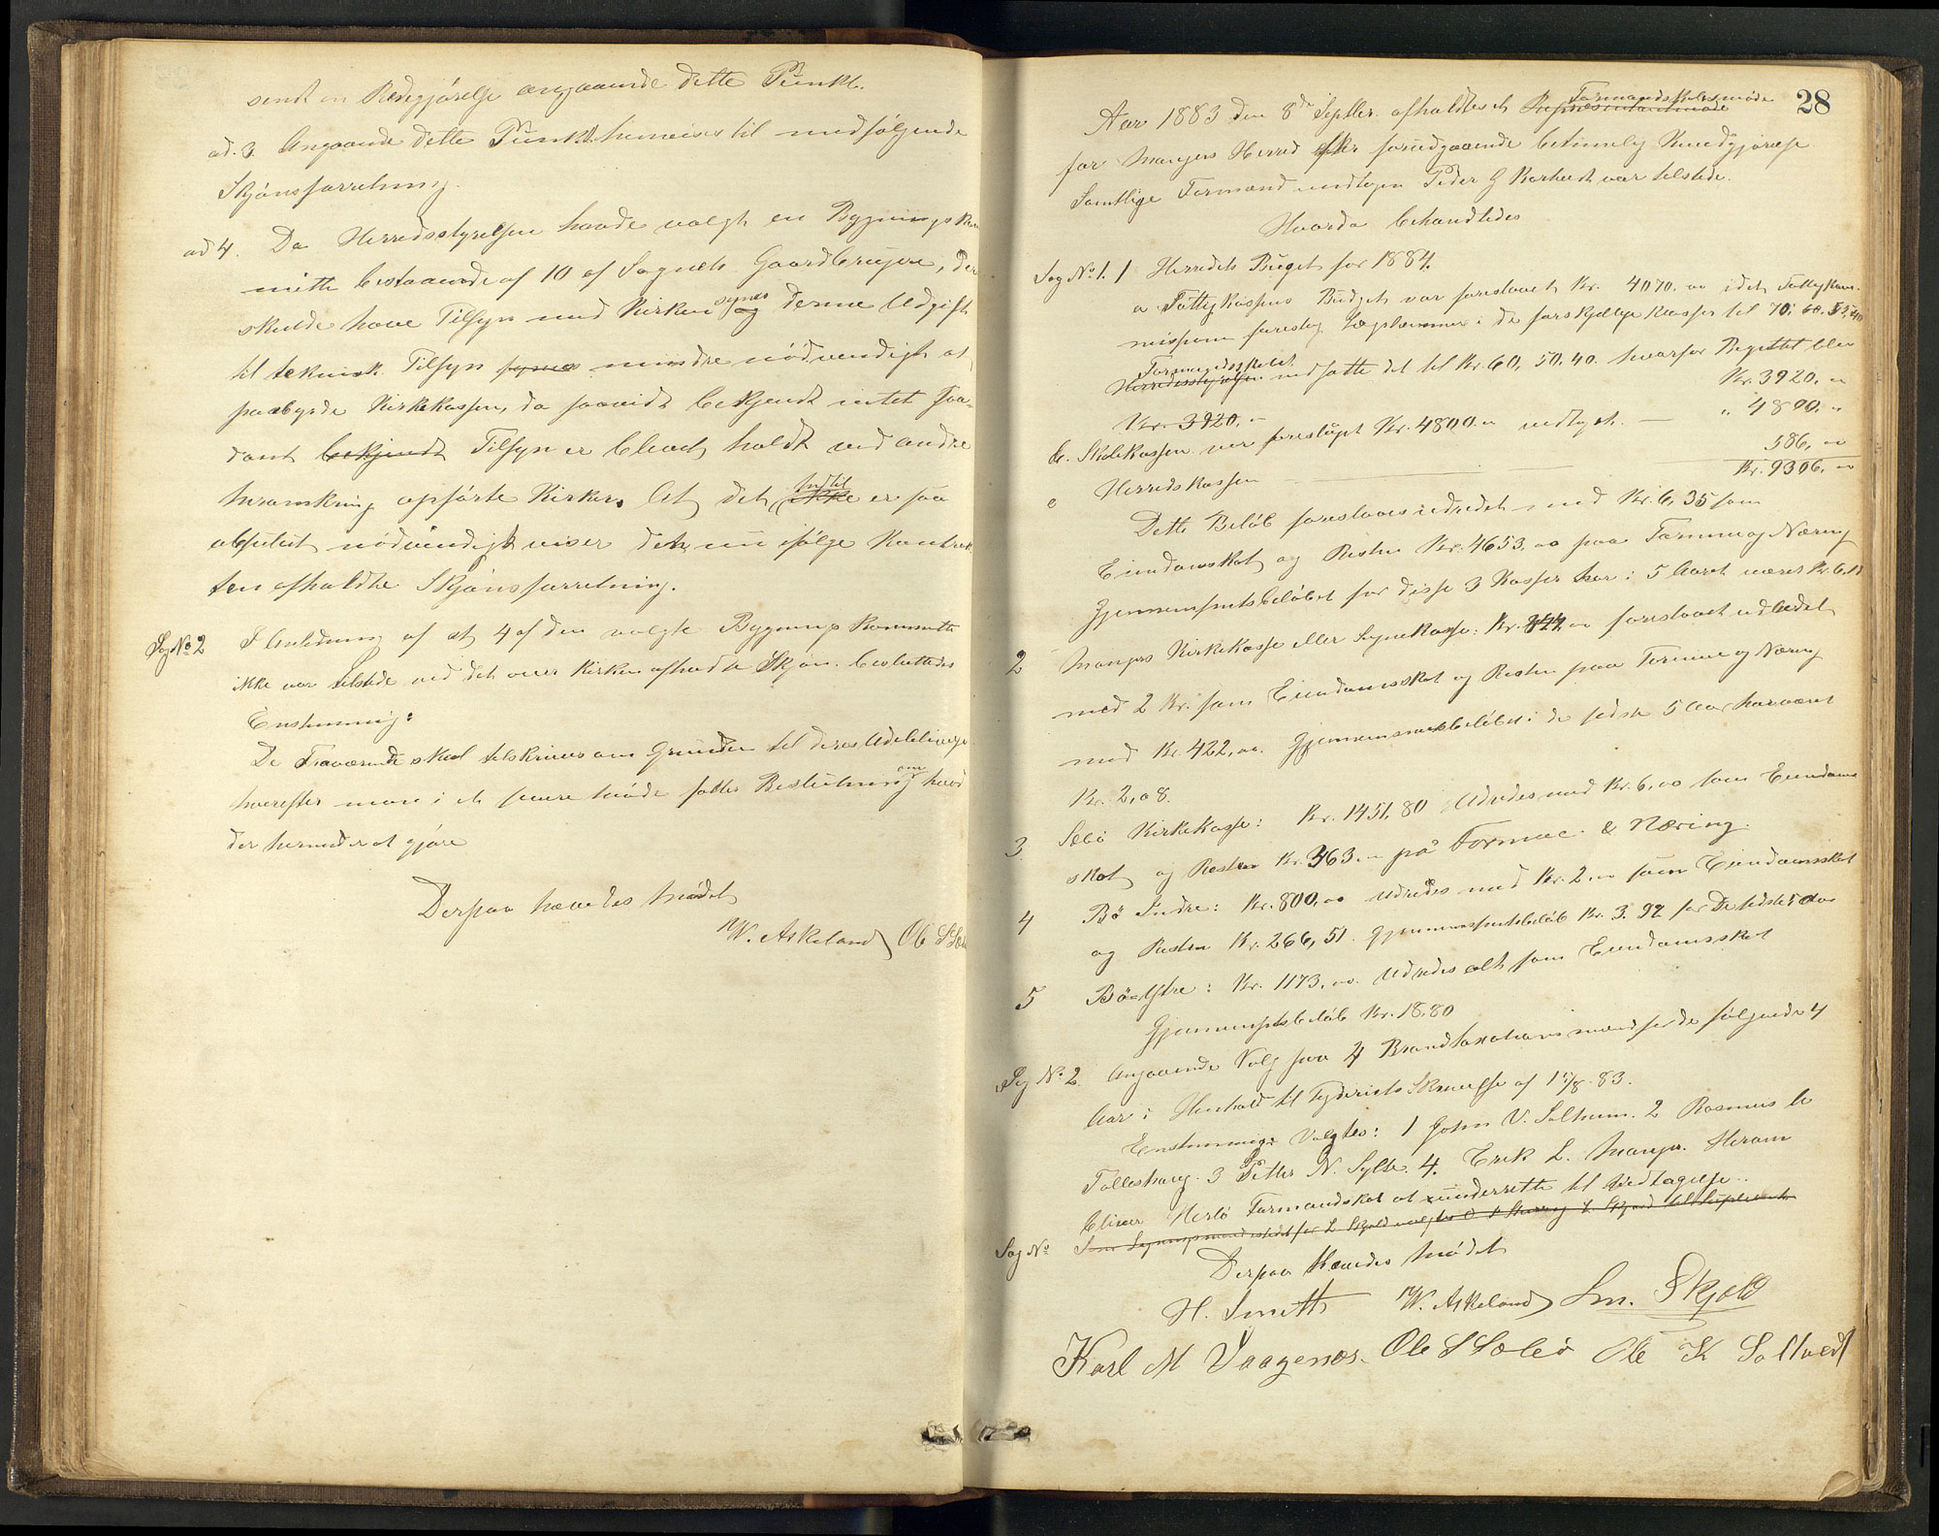 sendt en Redegjörelse angaaende dette Punkt.
ad. 3. Angaaende dette Punkt henvises til medfølgende
Skjönsforretning.
ad 4. Da Herredsstyrelsen havde valgt en Bygningskom
mitte bestaaende af 10 af Sognets Gaardbrugere, der
skulde have Tilsyn med Kirken synes og denne Udgift
til teknisk Tilsyn synes mindre nödvendigt at
paabyrde Kirkekassen, da saavidt bekjendt intet saa-
dant bekjendt Tilsyn er bleven holdt ved andre
heromkring opførte Kirker. At det indtil ikke er saa
absolut nödvendigt viser den nu ifølge Kontrak
ten afholdte Skjönsforretning.
Sag No 2 I Anledning af at 4 af den valgte Bygnings Kommitte
ikke var tilstede ved det over Kirken afholdte Skjön. besluttedes
Enstemmig:
De Fraværende skal tilskrives om Grunden til deres Udeblivelse
hvorefter man i et senere Möde fatter Beslutning om hvad
der herved er at gjöre
Derpaa hævedes Mødet
N. W. Askeland Ole S Sæbö
28
Aar 1883 den 8de Septbr. afholdtes et Formandsskabsmøde Repræsentantmøde
for Mangers Herred efter forudgaaende betimelig Kundgjørelse
Samtlige Formænd undtagen Peder G var tilstede.
Hvorda behandledes
Sag No 1. 1 Herredets Buget for 1884.
a Fattigkassens Budget var foreslaaet Kr. 4070.00 idet Fattigkom-
missionen foreslog i de forskjellige Klasser til 70, 60, 55, 40
Formandsskabet
Herredsstyrelsen nedsatte det til Kr. 60, 50, 40. hvorfor Bugettet blev
Kr. 3920. - Kr. 3920. "
b. Skolekassen var foreslaaet Kr. 4800. " vedtaget. " 4800. "
c Herredskassen 586, "
Kr. 9306, "
Dette Beløb foreslaaes udredet med Kr. 6,35 som
Eiendomsskat og Resten Kr. 4653,00 paa Formue og Næring
Gjennemsnitsbeløbet for disse 3 Kasser har i 5 Aaret været Kr. 6,
2 Mangers Kirkekasse eller Sognekasse: Kr. 844 " foreslaaet udredet
med 2 Kr. som Eiendomsskat og Resten paa Formue og Næring
med Kr. 422,00. Gjennemsnitsbeløbet i de sidste 5 Aar har været
Kr. 2,08.
3. Sæbö Kirkekasse: Kr. 1451,80 Udredes med Kr. 6,00 som Eiendoms
skat og Resten Kr. 363. " på Formue & Næring.
4 Bö Indre: Kr. 800,00 udredes med Kr. 2. " som Eiendomsskat
og Resten Kr. 266,51. Gjennemsnitsbeløb Kr. 3.92 for De sidste 5 Aar
5 Bö Ytre: Kr. 1173,00. Udredes alt som Eiendomsskat
Gjennemsnitsbeløb Kr. 18.80
Sag No 2. Angaaende Valg paa 4 Brandtaxationsmænd for de følgende 4
Aar i Henhold til Fogderiets Skrivelse af 15/8 83.
Enstemmig Valgtes: 1 John V. Solheim. 2 Rasmus
3 Petter N. Sylte. 4. Erik L. Manger. Herom
bliver Herlö Formandskab at underrette til Vedtagelse.
Sag No
Derpaa Hævedes Mødet
H. Smith N. W. Askeland Skjold
Karl M Vaagenæs. Ole S Sæbö Ole K Soltvedt